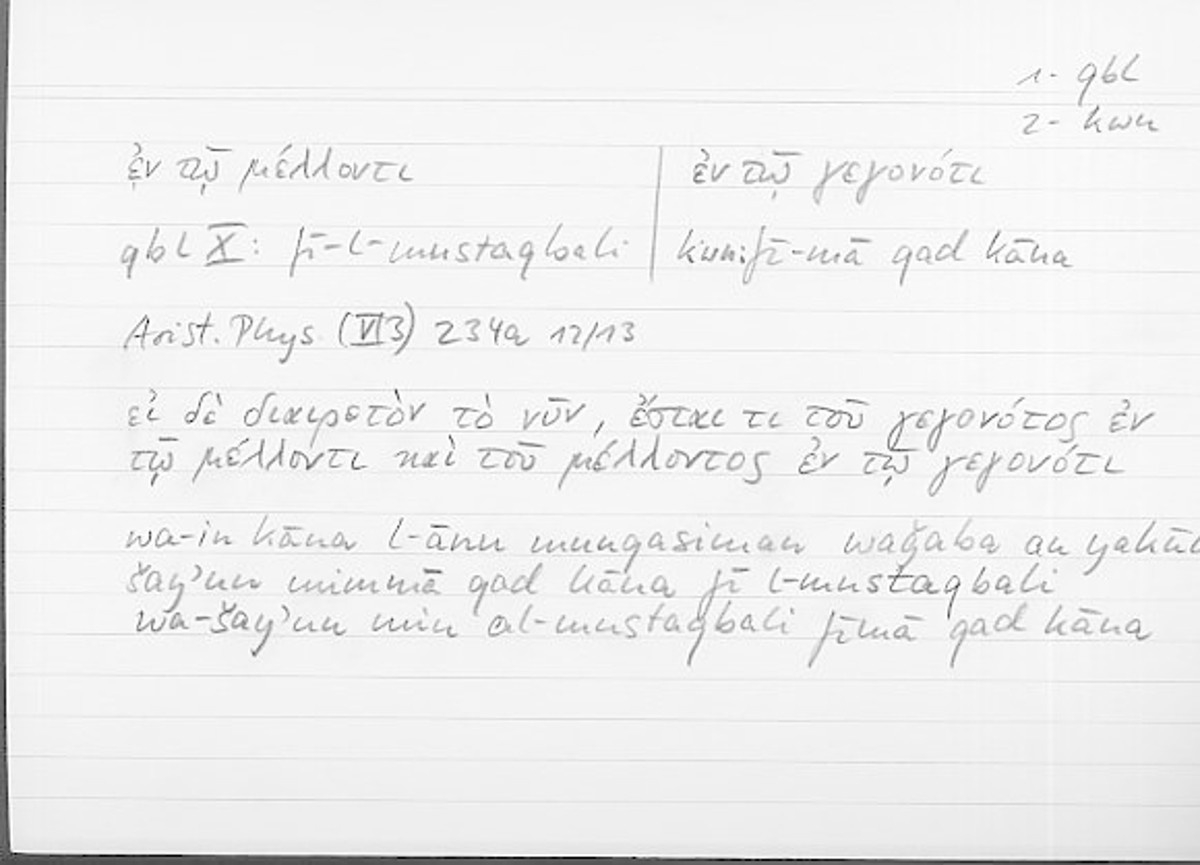 1- qbl
2- kwn
ἐν τῷ μέλλοντι | ἐν τῷ γεγονότι
qbl X: fī-l-mustaqbali | kwn: fī-mā qad kāna
Arist. Phys. (VI3) 234a 12/13
εἰ δὲ διαιρετὸν τὸ νῦν, ἔσται τι τοῦ γεγονότος ἐν
τῷ μέλλοντι καὶ τοῦ μέλλοντος ἐν τῷ γεγονότι
wa-in kāna l-ānu munqasiman waǧaba an yakūn
šay'un mimmā qad kāna fī l-mustaqbali
wa-šay'un min al-mustaqbali fīmā qad kāna